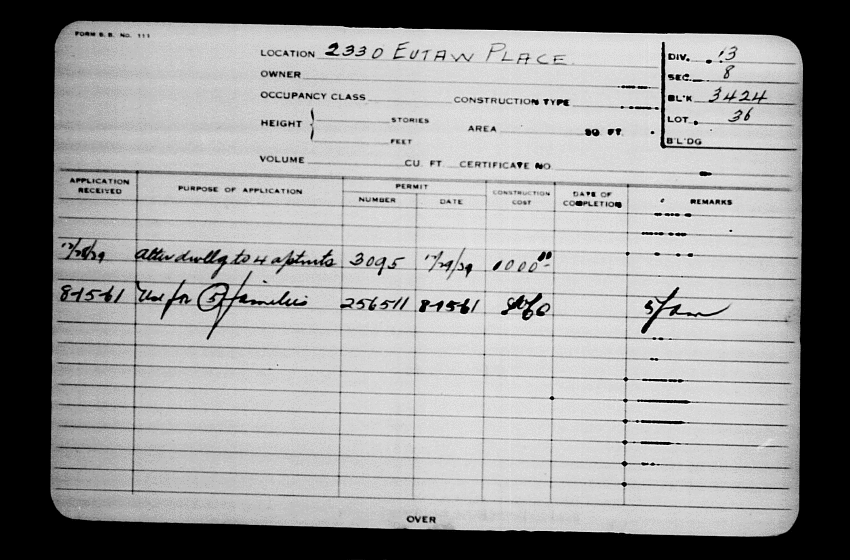 FORM B.B. NO. 111
LOCATION 2330 EUTAW PLACE
DIV. 13
OWNER
SEC. 8
OCCUPANCY CLASS CONSTRUCTION TYPE
BL'K 3424
HEIGHT STORIES AREA SQ FT.
LOT. 36
FEET
B'L'DG
VOLUME CU. FT. CERTIFICATE NO.
APPLICATION RECEIVED PURPOSE OF APPLICATION PERMIT NUMBER DATE CONSTRUCTION COST DATE OF COMPLETION REMARKS
12/28/29 alter dwellg to 4 aptmts 3095 12/29/29 1000 00
8-15-61 Use for 5 families 256511 8-15-61 5 fam
OVER